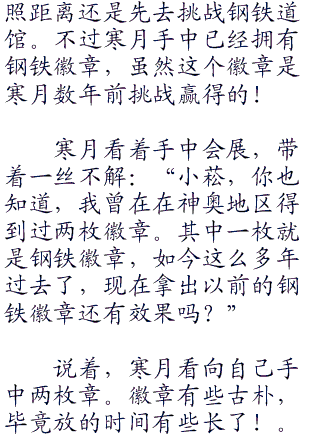 照距离还是先去挑战钢铁道
馆。不过寒月手中已经拥有
钢铁徽章，虽然这个徽章是
寒月数年前挑战赢得的！
寒月看着手中会展，带
着一丝不解：“小菘，你也
知道，我曾在在神奥地区得
到过两枚徽章。其中一枚就
是钢铁徽章，如今这么多年
过去了，现在拿出以前的钢
铁徽章还有效果吗？”
说着，寒月看向自己手
中两枚章。徽章有些古朴，
毕竟放的时间有些长了！。